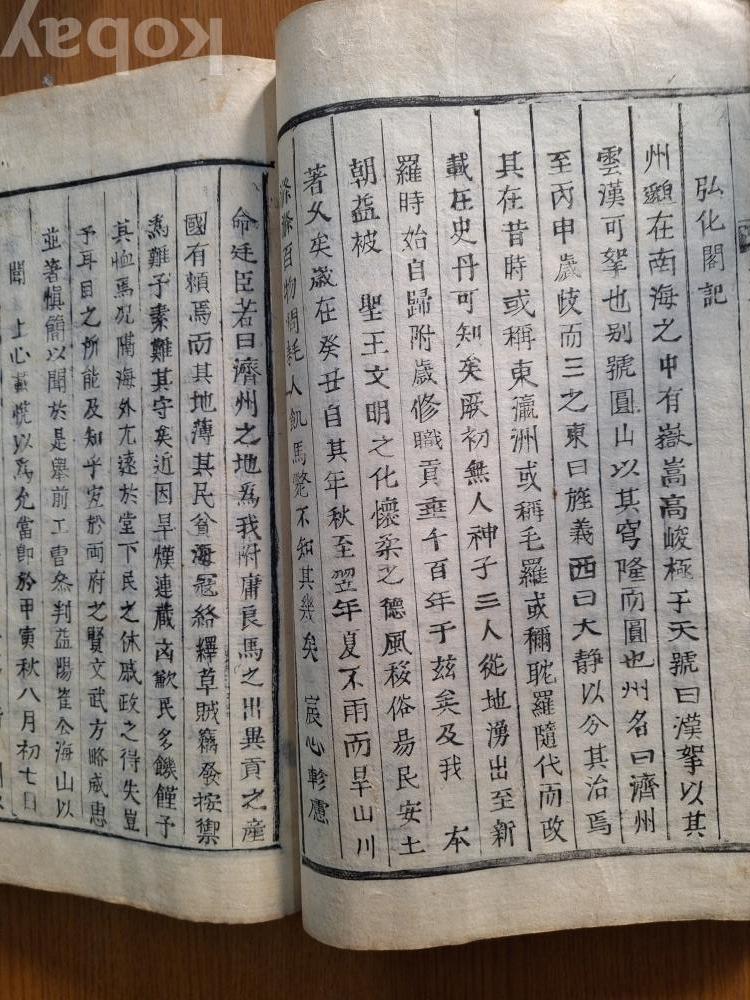 弘化閣記
州邈在南海之中有嶽嵩高峻極于天號曰漢挐以其
雲漢可挐也别號圓山以其穹隆而圓也州名曰濟州
至丙申歲歧而三之東曰旌義西曰大静以分其治焉
其在昔時或稱東瀛洲或稱毛羅或稱耽羅隨代而改
載在史丹可知矣厥初無人神子三人從地湧出至新
羅時始自歸附歲修職貢垂千百年于兹矣及我 本
朝益被 聖王文明之化懷柔之德風移俗易民安土
著久矣歲在癸丑自其年秋至翌年夏不雨而旱山川
滌滌百物凋耗人飢馬斃不知其幾矣 宸心軫慮
命廷臣若曰濟州之地爲我附庸良馬之出異貢之產
國有賴焉而其地薄其民貧海寇絡繹草賊竊發按禦
爲難子素難其守矣近因旱熯連歲凶歉民多饑饉予
其恤焉况隔海外尤遠於堂下民之休戚政之得失豈
予耳目之所能及知乎宜於両府之賢文武方略威惠
並著愼簡以聞於是擧前工曹叅判益陽崔公海山以
聞 上心嘉悦以爲允當即於甲寅秋八月初七日
kobay